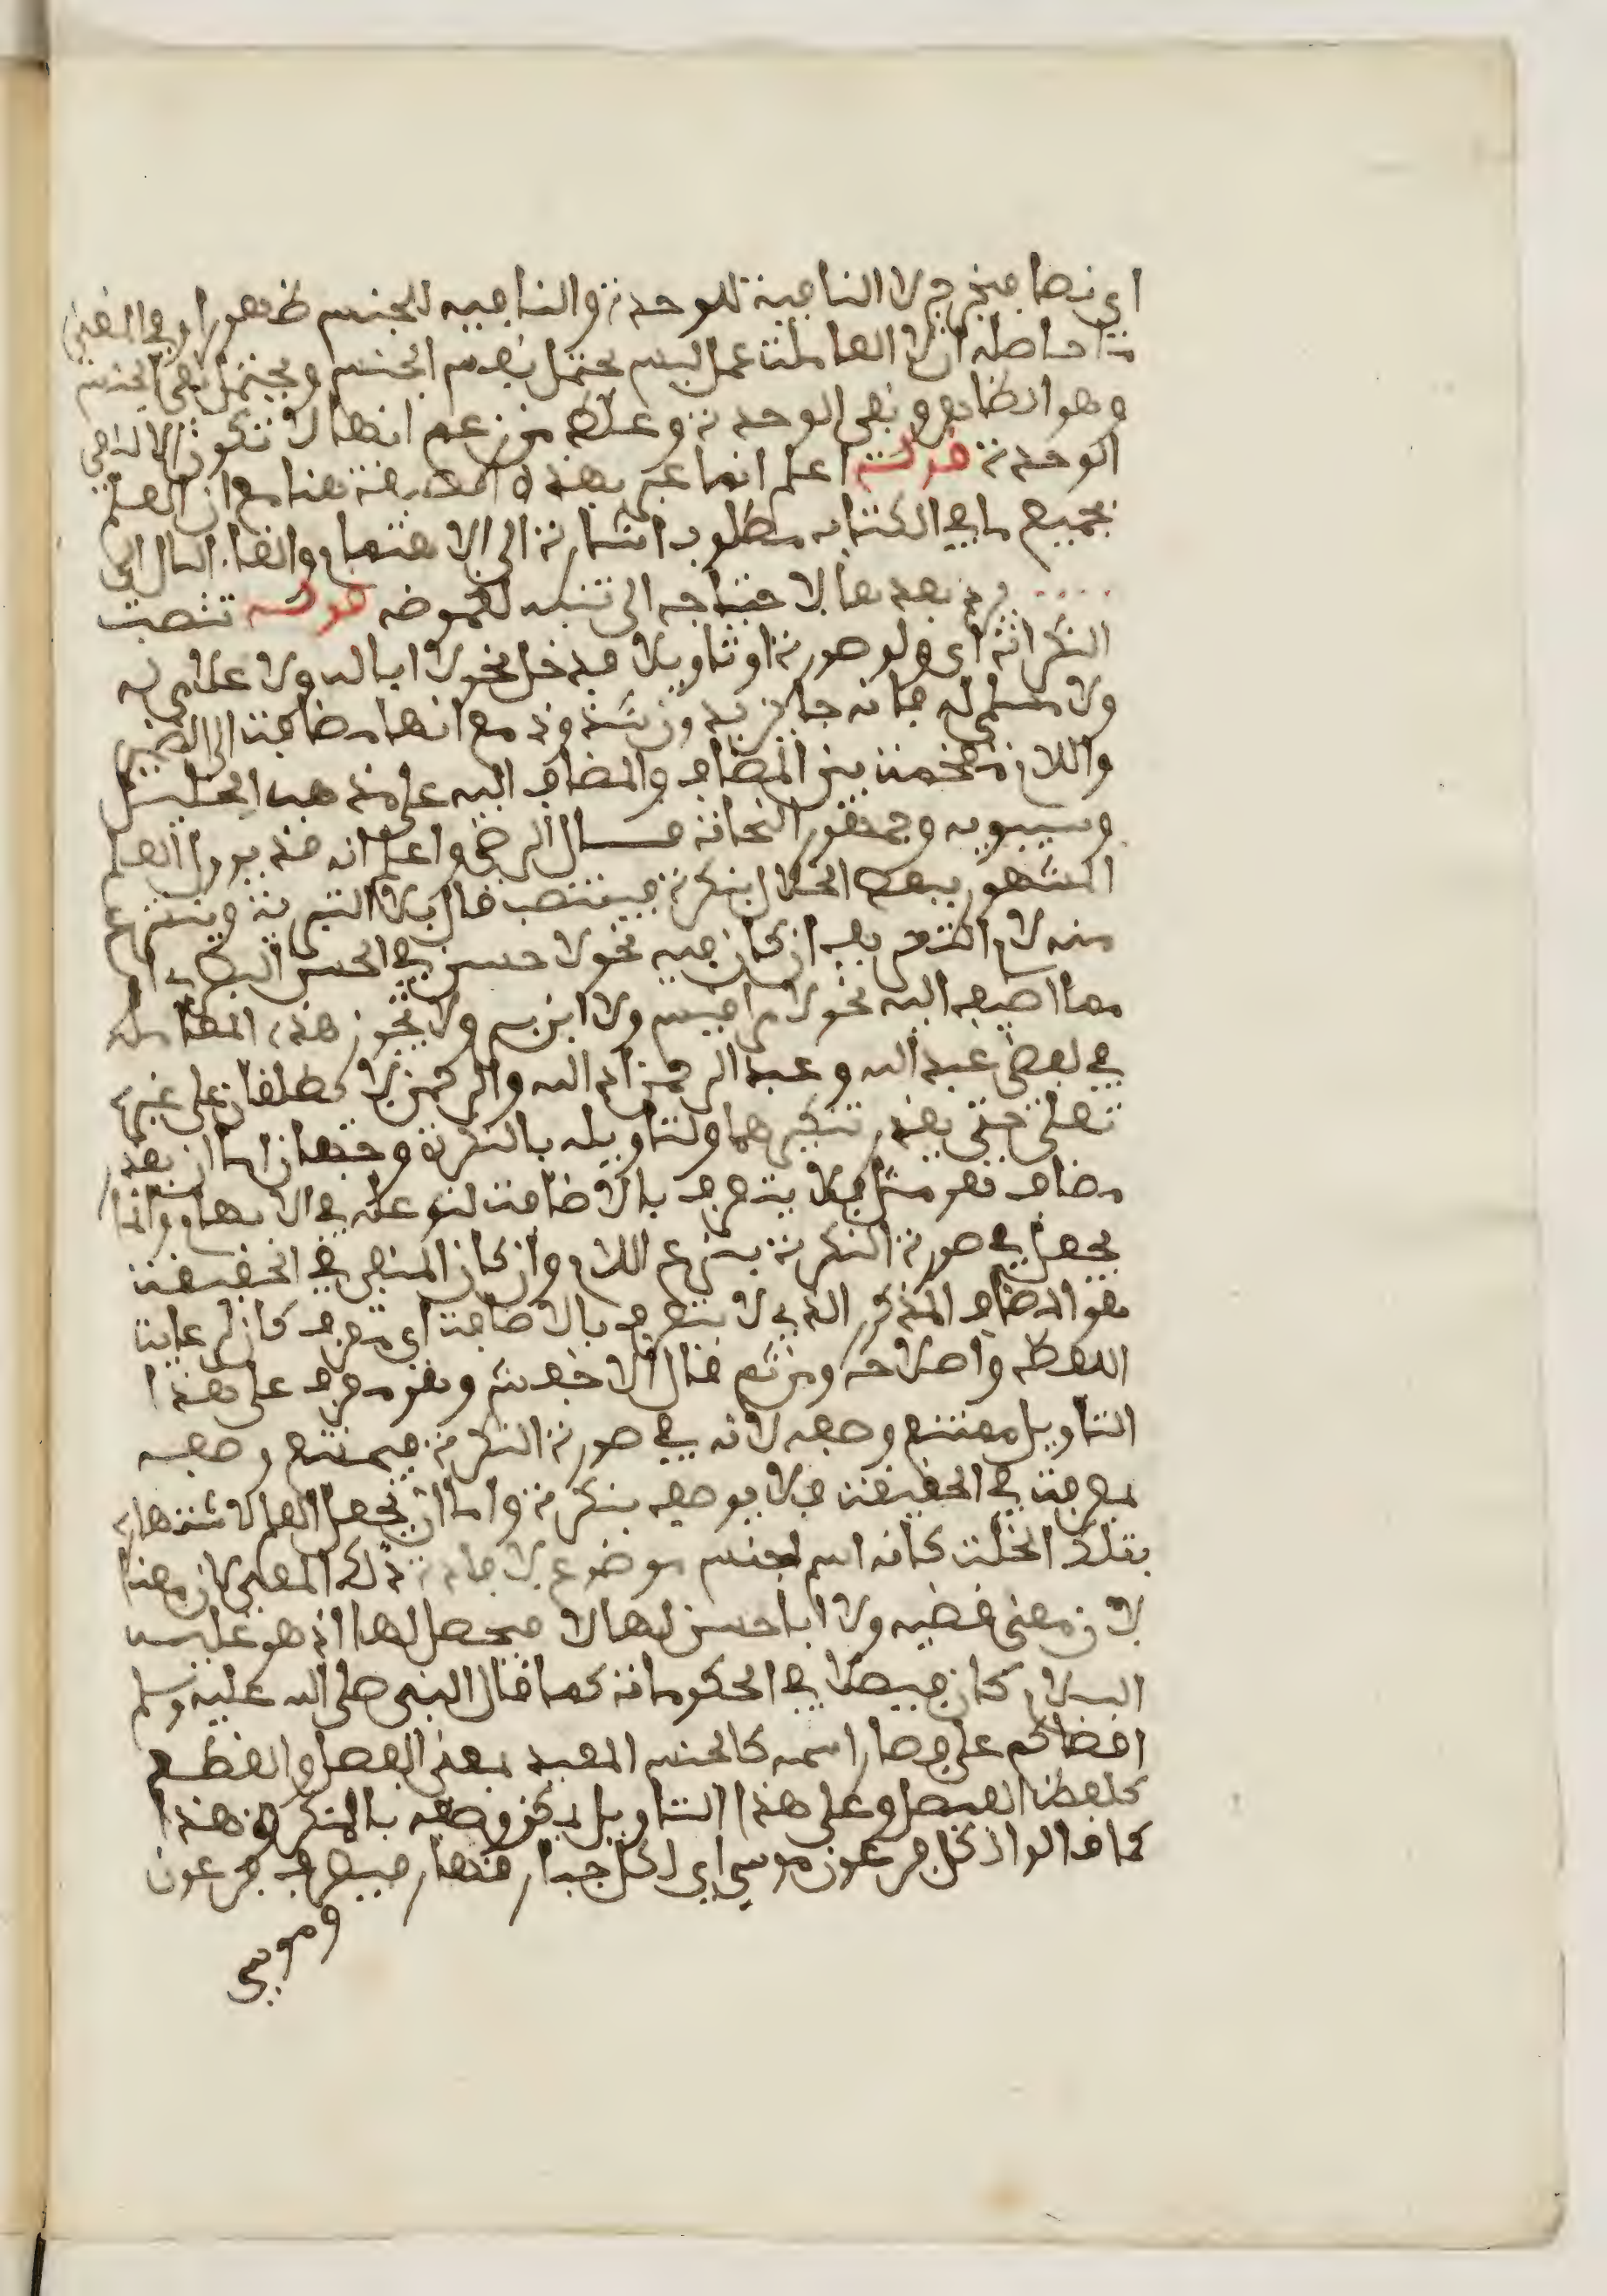 اي نصا فيخرج لا النافية للوحدة والنافية للجنس ظهورا وفي المغني
ما حاصله ان لا العاملة عمل ليس يحتمل نفي الجنس ويحتمل نفي الجنس
وهو الظاهر ونفي الوحدة وغلط من زعم انها لا تكون الا لنفي
الوحدة قوله اعلم انما عبر بهذه هنا مع ان العلم
بجميع ما في الكتاب مطلوب اشارة الى الاهتمام والقاء البال الى
بعدها لاحتياجه الى تنبه لغموضه قوله تنصب
النكرات اي ولو صورة او تاويلا فدخل نحو لا ابا له ولا غلامي له
ولا مسلمي له فانه جايز بدون شذوذ مع انها مضافة الى الضمير
واللام مقحمة بين المضاف والمضاف اليه على مذهب الخليل
وسيبويه وجمهور النحاة قال الرضي واعلم انه قد يوول العلم
المشهور ببعض الخلال بنكرة فينتصب فال بلا التبرية وينتزع
منه لام التعريف ان كان فيه نحو لا حسن في الحسن البصري او
مما اضيف اليه نحو لا امرا قيس ولا ابن زبير ولا تجوز هذه المعاملة
في لفظي عبد الله وعبد الرحمن اذ الله والرحمن لا يطلقان على غيره
تعلى حتى يقدر تنكيرهما ولتاويله بالنكرة وجهان اما ان يقدر
مضاف هو مثل فلا يتعرف بالاضافة لتوغله في الابهام وانما
يجعل في صورة النكرة بنزع اللام وان كان المنفي في الحقيقة
هو المضاف المذكور الذي لا يتعرف بالاضافة اي معرف كان لرعاية
اللفظ واصلاحه ومن ثم قال الاخفش وهو معرف على هذا
التاويل ممتنع وصفه لانه في صورة النكرة فيمتنع وصفه
بمعرفة في الحقيقة فلا يوصف بنكرة واما ان يجعل العلم لاشتهاره
بتلك الخلة كانه اسم لجنس موضوع لافادة ذلك المعنى لان معنا
لان معنى قضية ولا ابا حسن لها لا فيصل لها اذ هو عليه
السلام كان فيصلا في الحكومات كما قال النبي صلى الله عليه وسلم
اقضاكم علي فصار اسمه كالجنس المفيد لمعنى الفصل والقطع
كلفظ الفيصل وعلى هذا التاويل يمكن وصفه بالمنكر وهذا
كما قالوا لكل فرعون موسى اي لكل جبار قهار فيصرف فرعون
وموسى